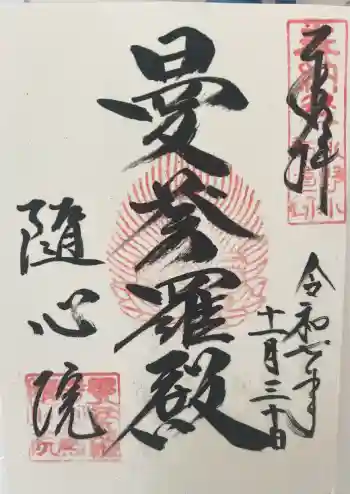 奉拝
曼荼羅殿
随心院
令和六年
十一月三十日